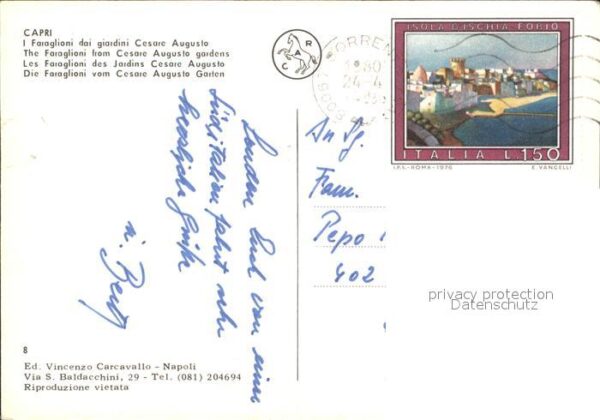 CAPRI
I Faraglioni dai giardini Cesare Augusto
The Faraglioni from Cesare Augusto gardens
Les Faraglioni des Jardins Cesare Augusto
Die Faraglioni vom Cesare Augusto Garten
C A R
SORREN
1980
24-4
ISOLA D'ISCHIA FORIO
ITALIA L.150
I.P.S.-ROMA-1976
E. VANCELLI
von einer
Süditalien fahrt sehr
herzliche Grüße
An Fg.
Fam.
Pepo
402
privacy protection
Datenschutz
8
Ed. Vincenzo Carcavallo - Napoli
Via S. Baldacchini, 29 - Tel. (081) 204694
Riproduzione vietata